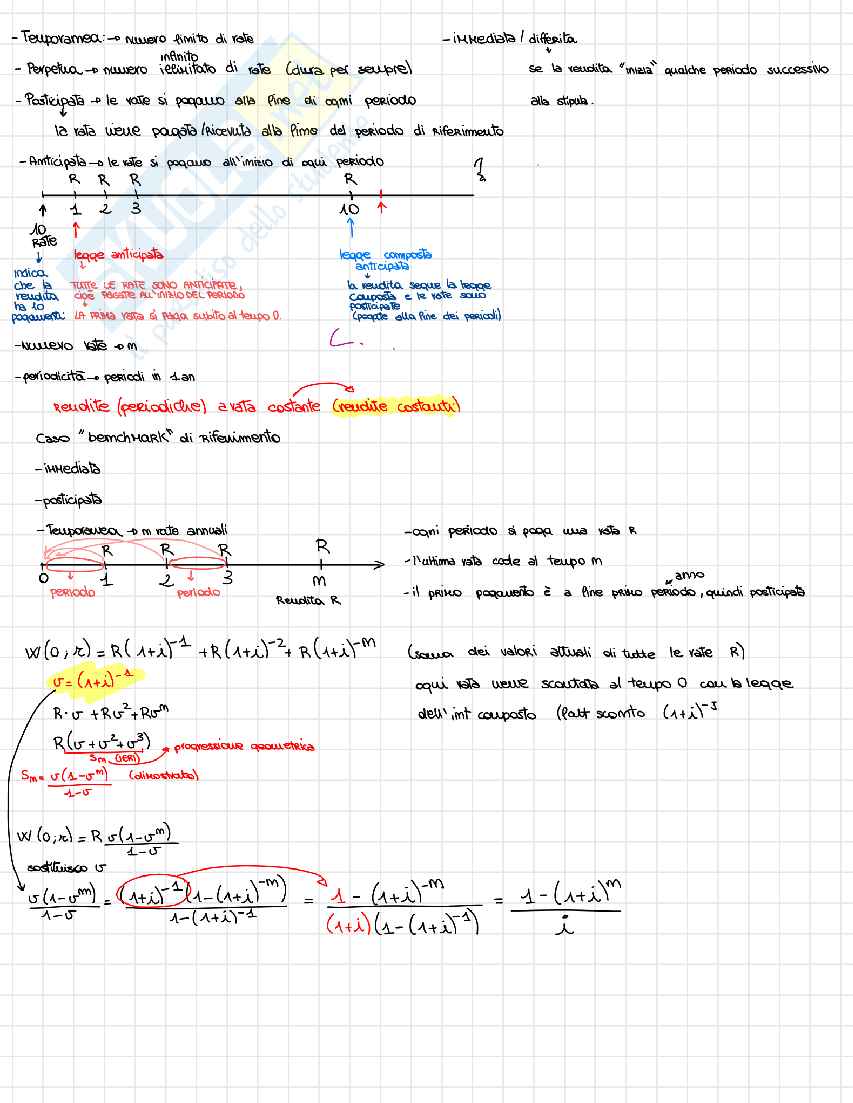 - Temporanea: → numero finito di rate
- Perpetua → numero illimitato di rate (dura per sempre)
infinito
- Posticipata → le rate si pagano alla fine di ogni periodo
la rata viene pagata/ricevuta alla fine del periodo di riferimento
- Anticipata → le rate si pagano all'inizio di ogni periodo
- immediata / differita
se la rendita "inizia" qualche periodo successivo
alla stipula.
R R R R
1 2 3 10
10
Rate
indica
che la
rendita
ha 10
pagamenti:
legge anticipata
TUTTE LE RATE SONO ANTICIPATE,
cioè PAGATE ALL'INIZIO DEL PERIODO
LA PRIMA rata si paga subito al tempo 0.
legge composta
anticipata
la rendita segue la legge
composta e le rate sono
posticipate
(pagate alla fine dei periodi)
- numero rate → m
- periodicità → periodi in 1 an
Rendite (periodiche) a rata costante (rendite costanti)
Caso "benchmark" di riferimento
- immediata
- posticipata
- Temporanea → m rate annuali
R R R R
0 1 2 3 m
periodo periodo
Rendita R
- ogni periodo si paga una rata R
- l'ultima rata cade al tempo m
anno
- il primo pagamento è a fine primo periodo, quindi posticipata
W(0;r) = R(1+i)⁻¹ + R(1+i)⁻² + R(1+i)⁻ᵐ
(somma dei valori attuali di tutte le rate R)
v = (1+i)⁻¹
ogni rata viene scontata al tempo 0 con la legge
R·v + Rv² + Rvᵐ
dell'int composto (fatt sconto (1+i)⁻ᴶ
R(v + v² + v³)
→ progressione geometrica
Sm (IERI)
Sm = v(1-vᵐ) / 1-v (dimostrato)
W(0;r) = R v(1-vᵐ) / 1-v
sostituisco v
v(1-vᵐ) / 1-v = (1+i)⁻¹(1-(1+i)⁻ᵐ) / 1-(1+i)⁻¹ = 1-(1+i)⁻ᵐ / (1+i)(1-(1+i)⁻¹) = 1-(1+i)ᵐ / i